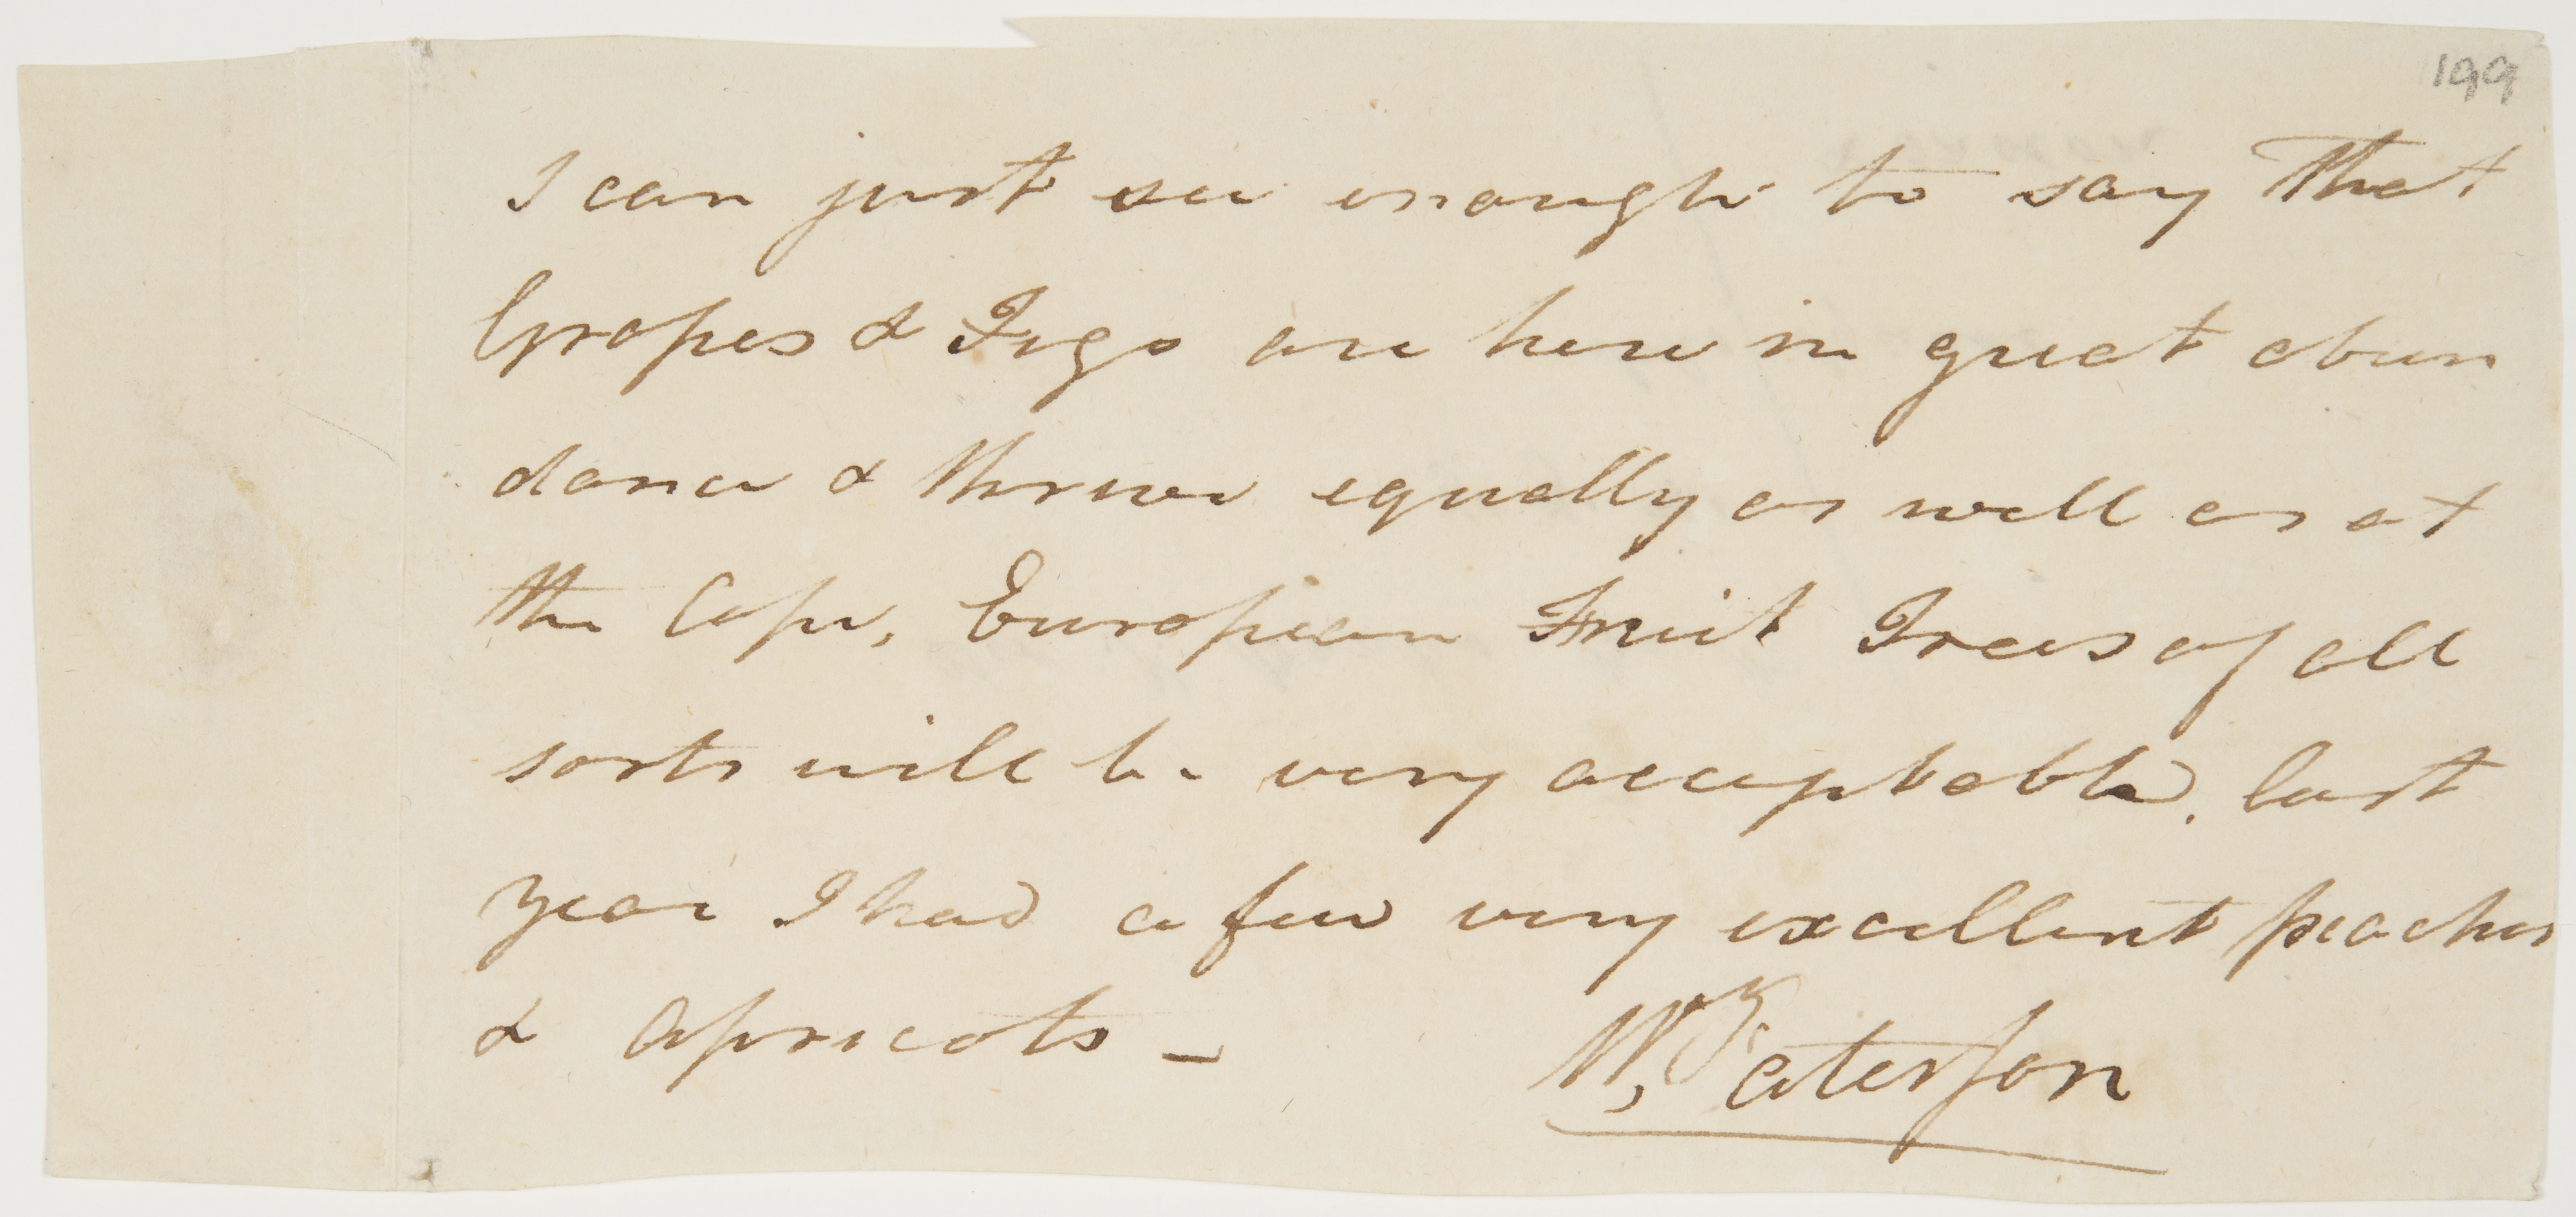 199
I can just see enough to say That
Grapes & Figs are here in great abun
dance & thrive equally as well as at
the Cape, European Fruit Trees of all
sorts will be very acceptable, last
year I had a few very excellent peaches
& Apricots -
W, Paterson